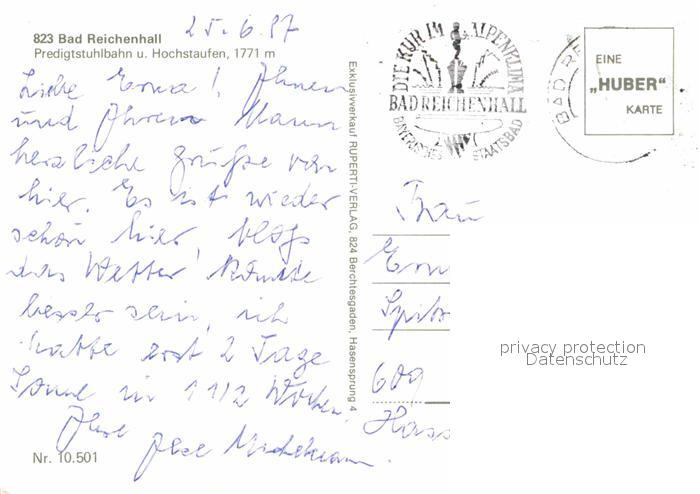 823 Bad Reichenhall
Predigtstuhlbahn u. Hochstaufen, 1771 m
25.6.87
Liebe Erna! Ihnen
und Ihrem Mann
herzliche Grüße von
hier. Es ist wieder
schön hier, bloß
das Wetter könnte
besser sein, ich
hatte erst 2 Tage
Sonne in 1 1/2 Wochen.
Ihre Ilse
Nr. 10.501
Exklusivverkauf RUPERTI-VERLAG, 824 Berchtesgaden, Hasensprung 4
DIE KUR IM ALPENKLIMA
BAD REICHENHALL
BAYERISCHES STAATSBAD
BAD RE
EINE
„HUBER"
KARTE
Frau
Ern
Spitz
609
Hass
privacy protection
Datenschutz